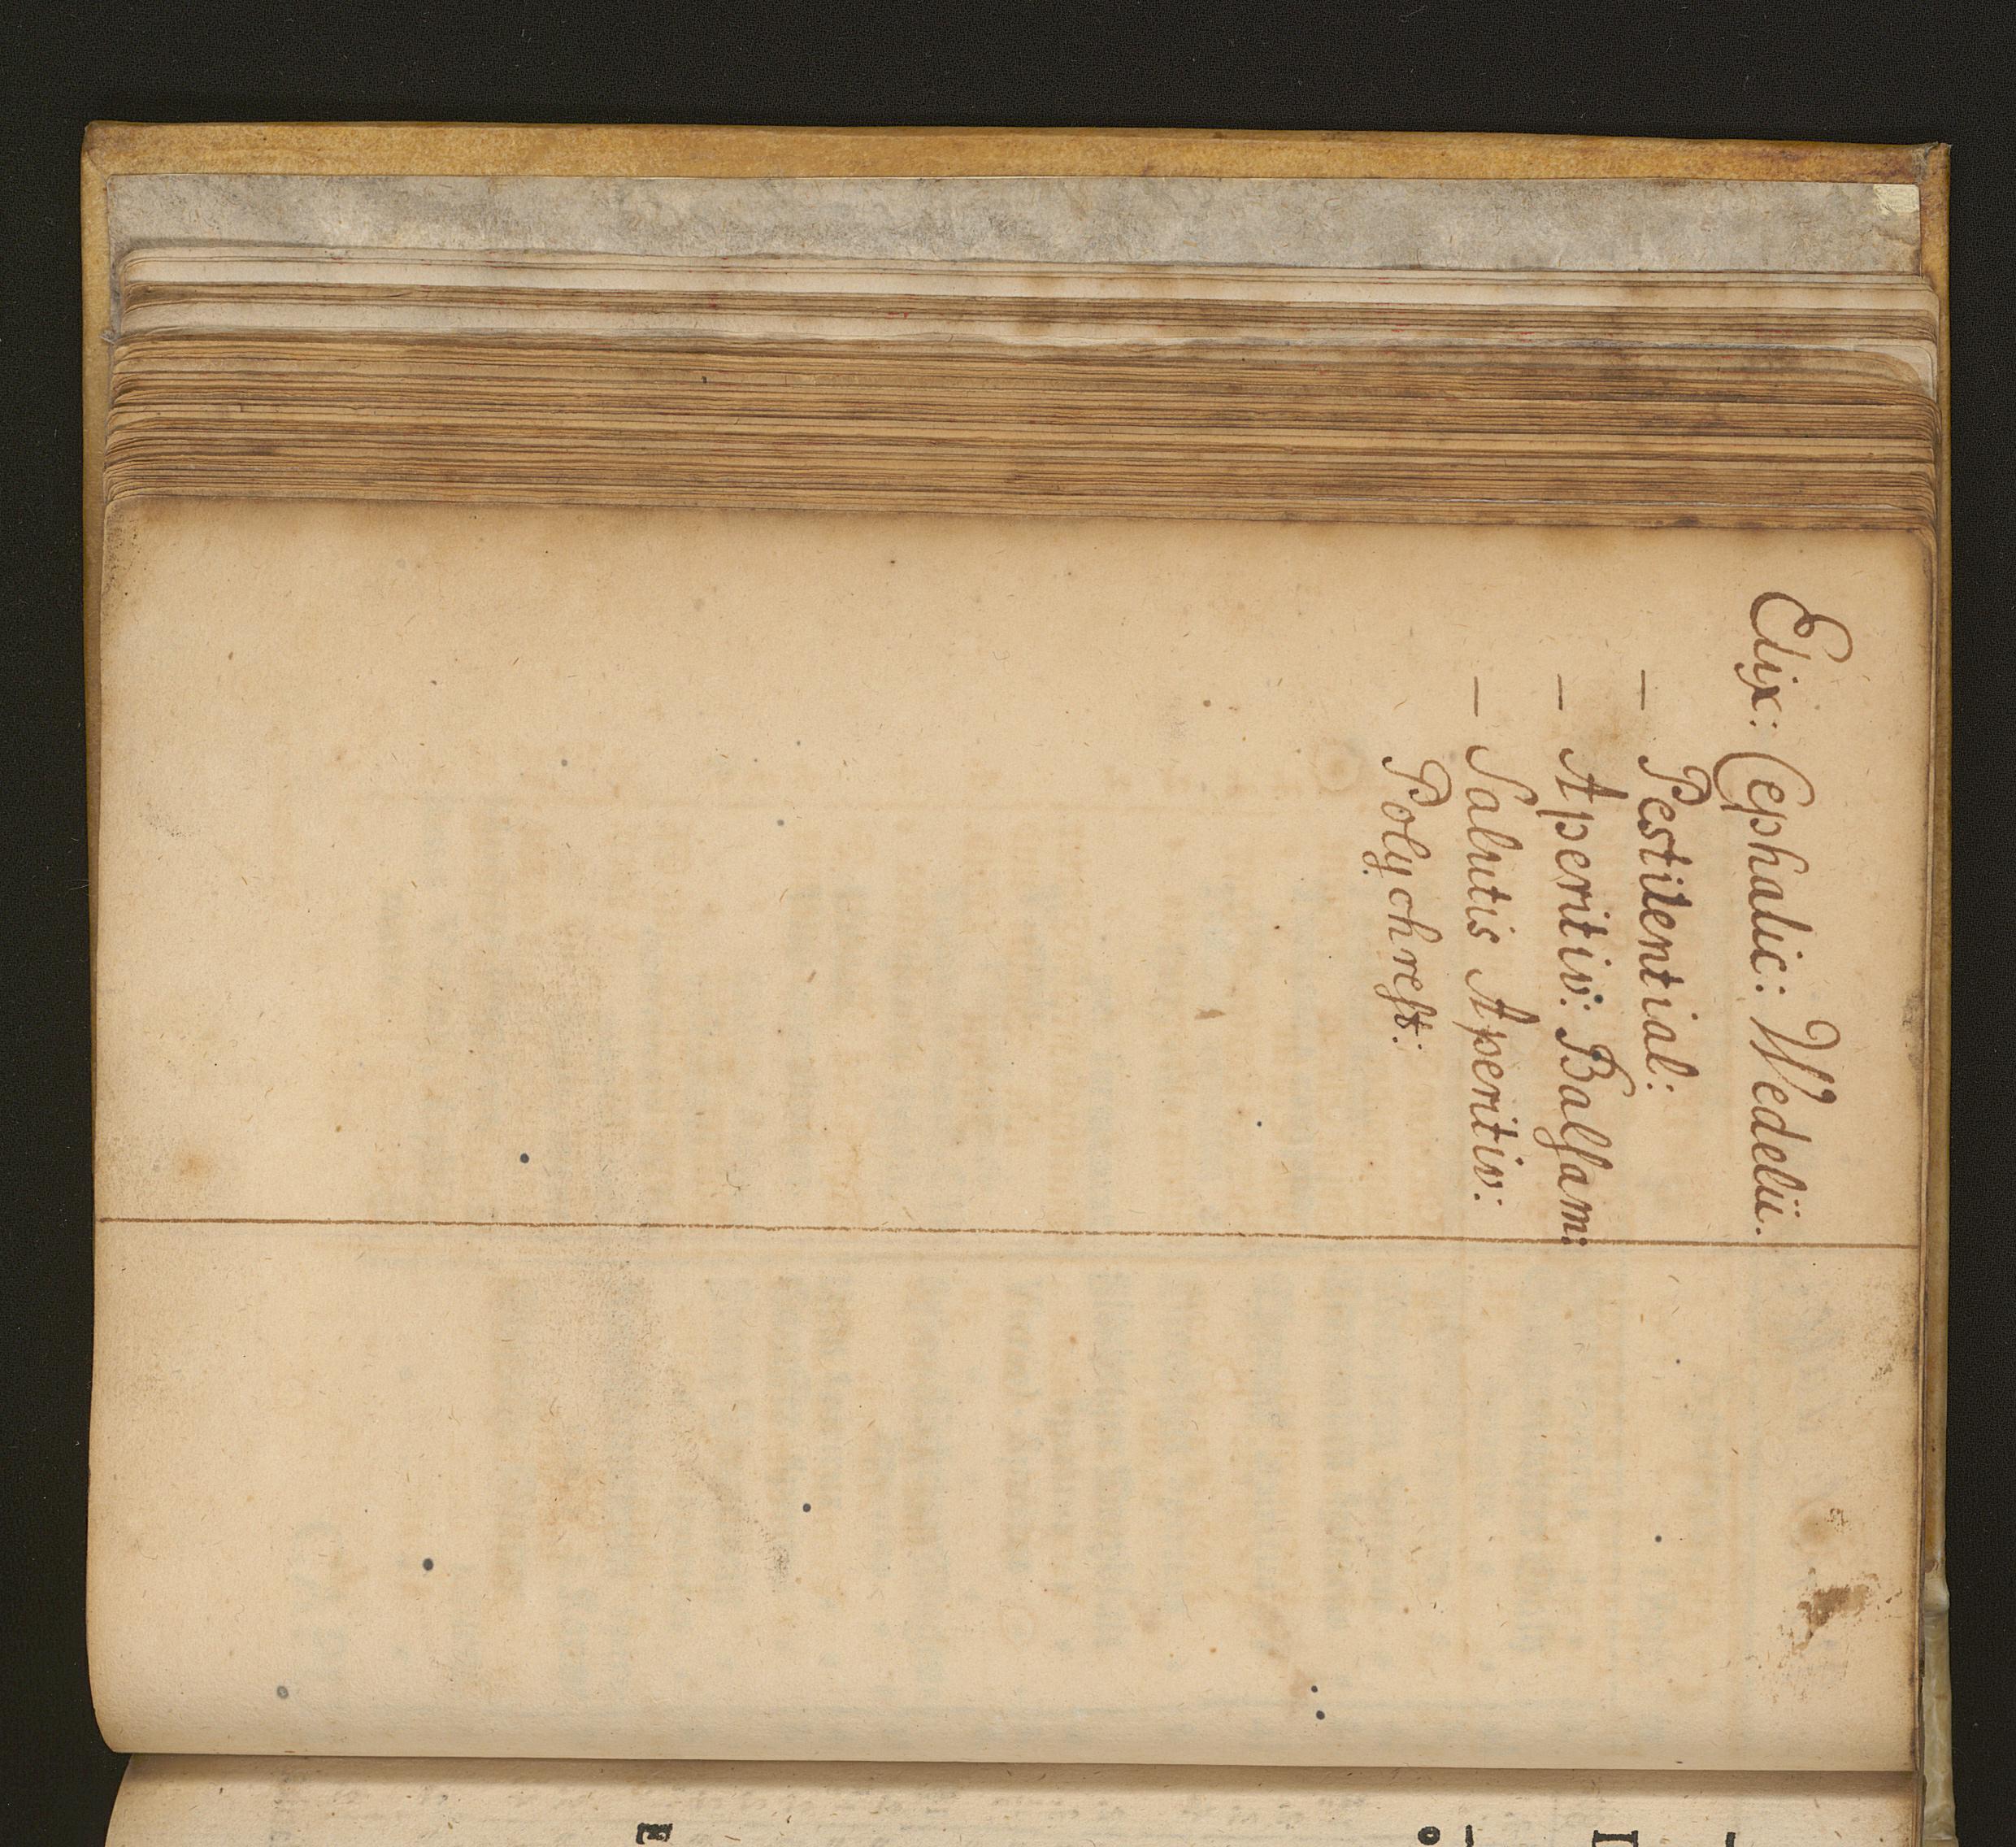 Elix: Cephalic: Wedelii.
— Pestilential:
— Aperitiv: Balſam:
— Salutis Aperitiv:
Polychreſt: